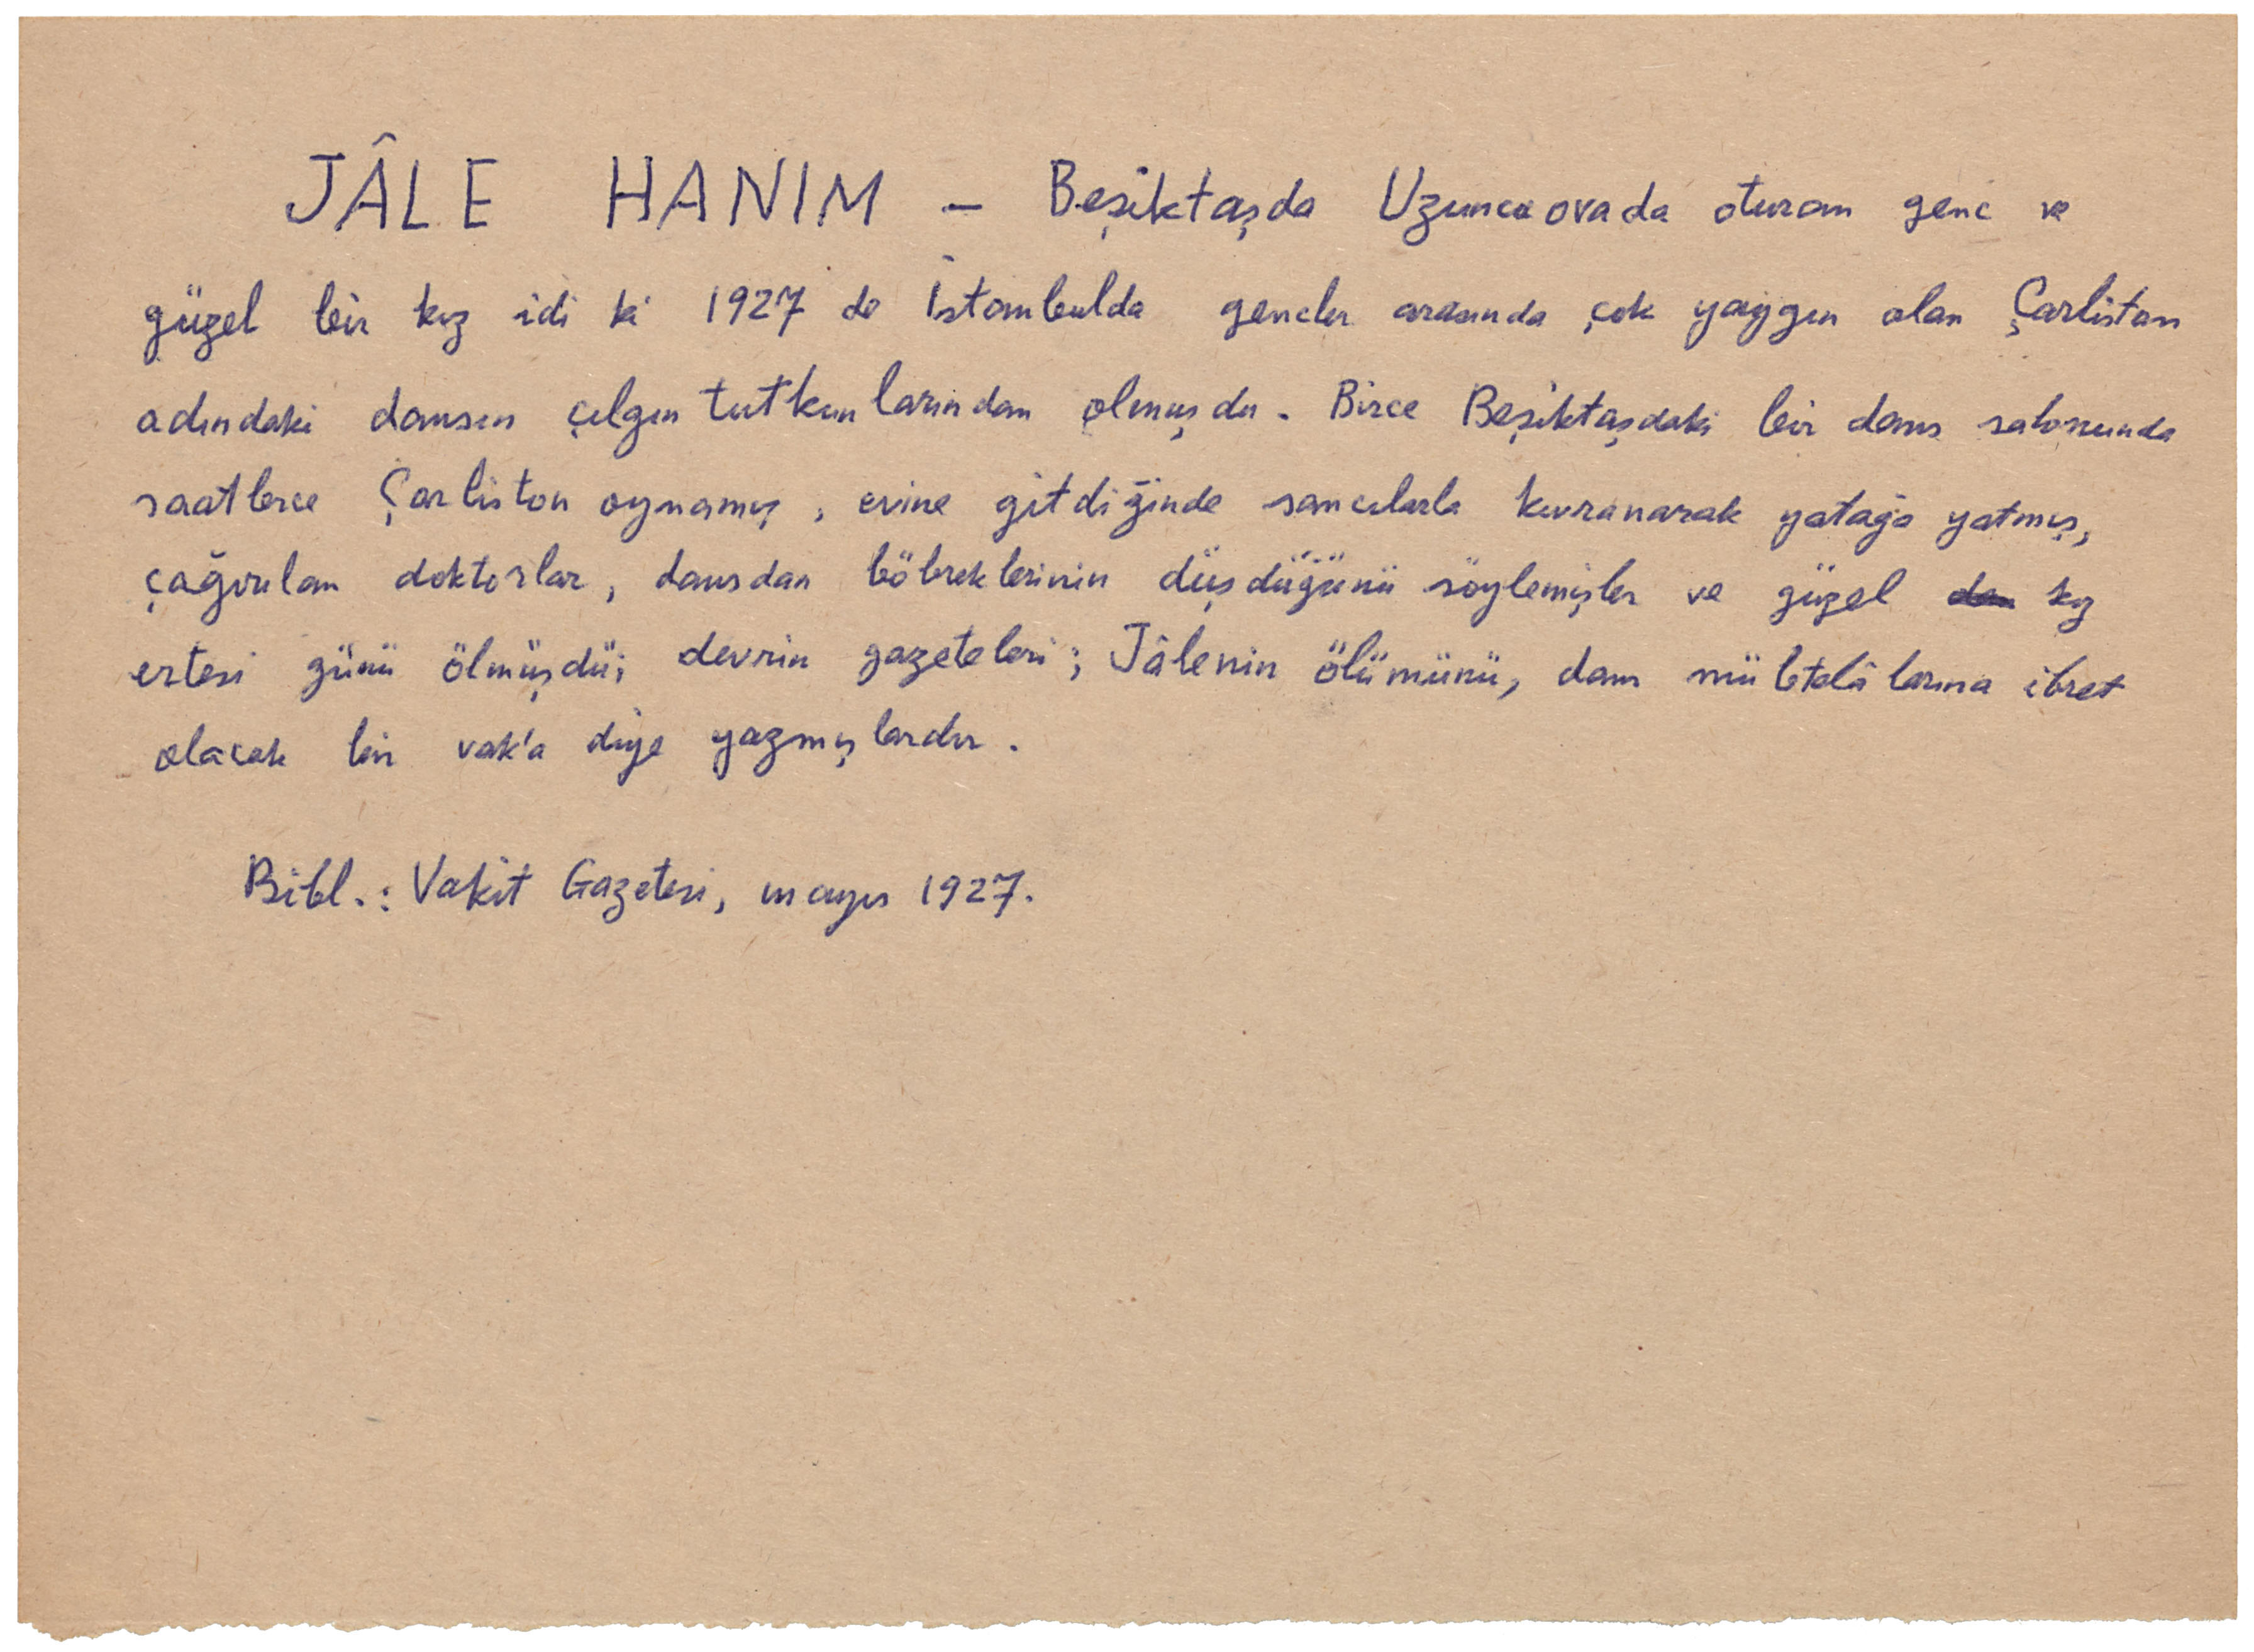 JÂLE HANIM — Beşiktaşda Uzuncaovada oturan genc ve
güzel bir kız idi ki 1927 de İstanbulda gencler arasında çok yaygın olan Çarliston
adındaki dansın çılgın tutkunlarından olmuşdu. Birce Beşiktaşdaki bir dans salonunda
saatlerce Çarliston oynamış, evine gitdiğinde sancılarla kıvranarak yatağa yatmış,
çağırılan doktorlar, dansdan böbreklerinin düşdüğünü söylemişler ve güzel kız
ertesi günü ölmüşdü; devrin gazeteleri; Jâlenin ölümünü, dans mübtelâlarına ibret
olacak bir vak'a diye yazmışlardır.
Bibl.: Vakit Gazetesi, mayıs 1927.